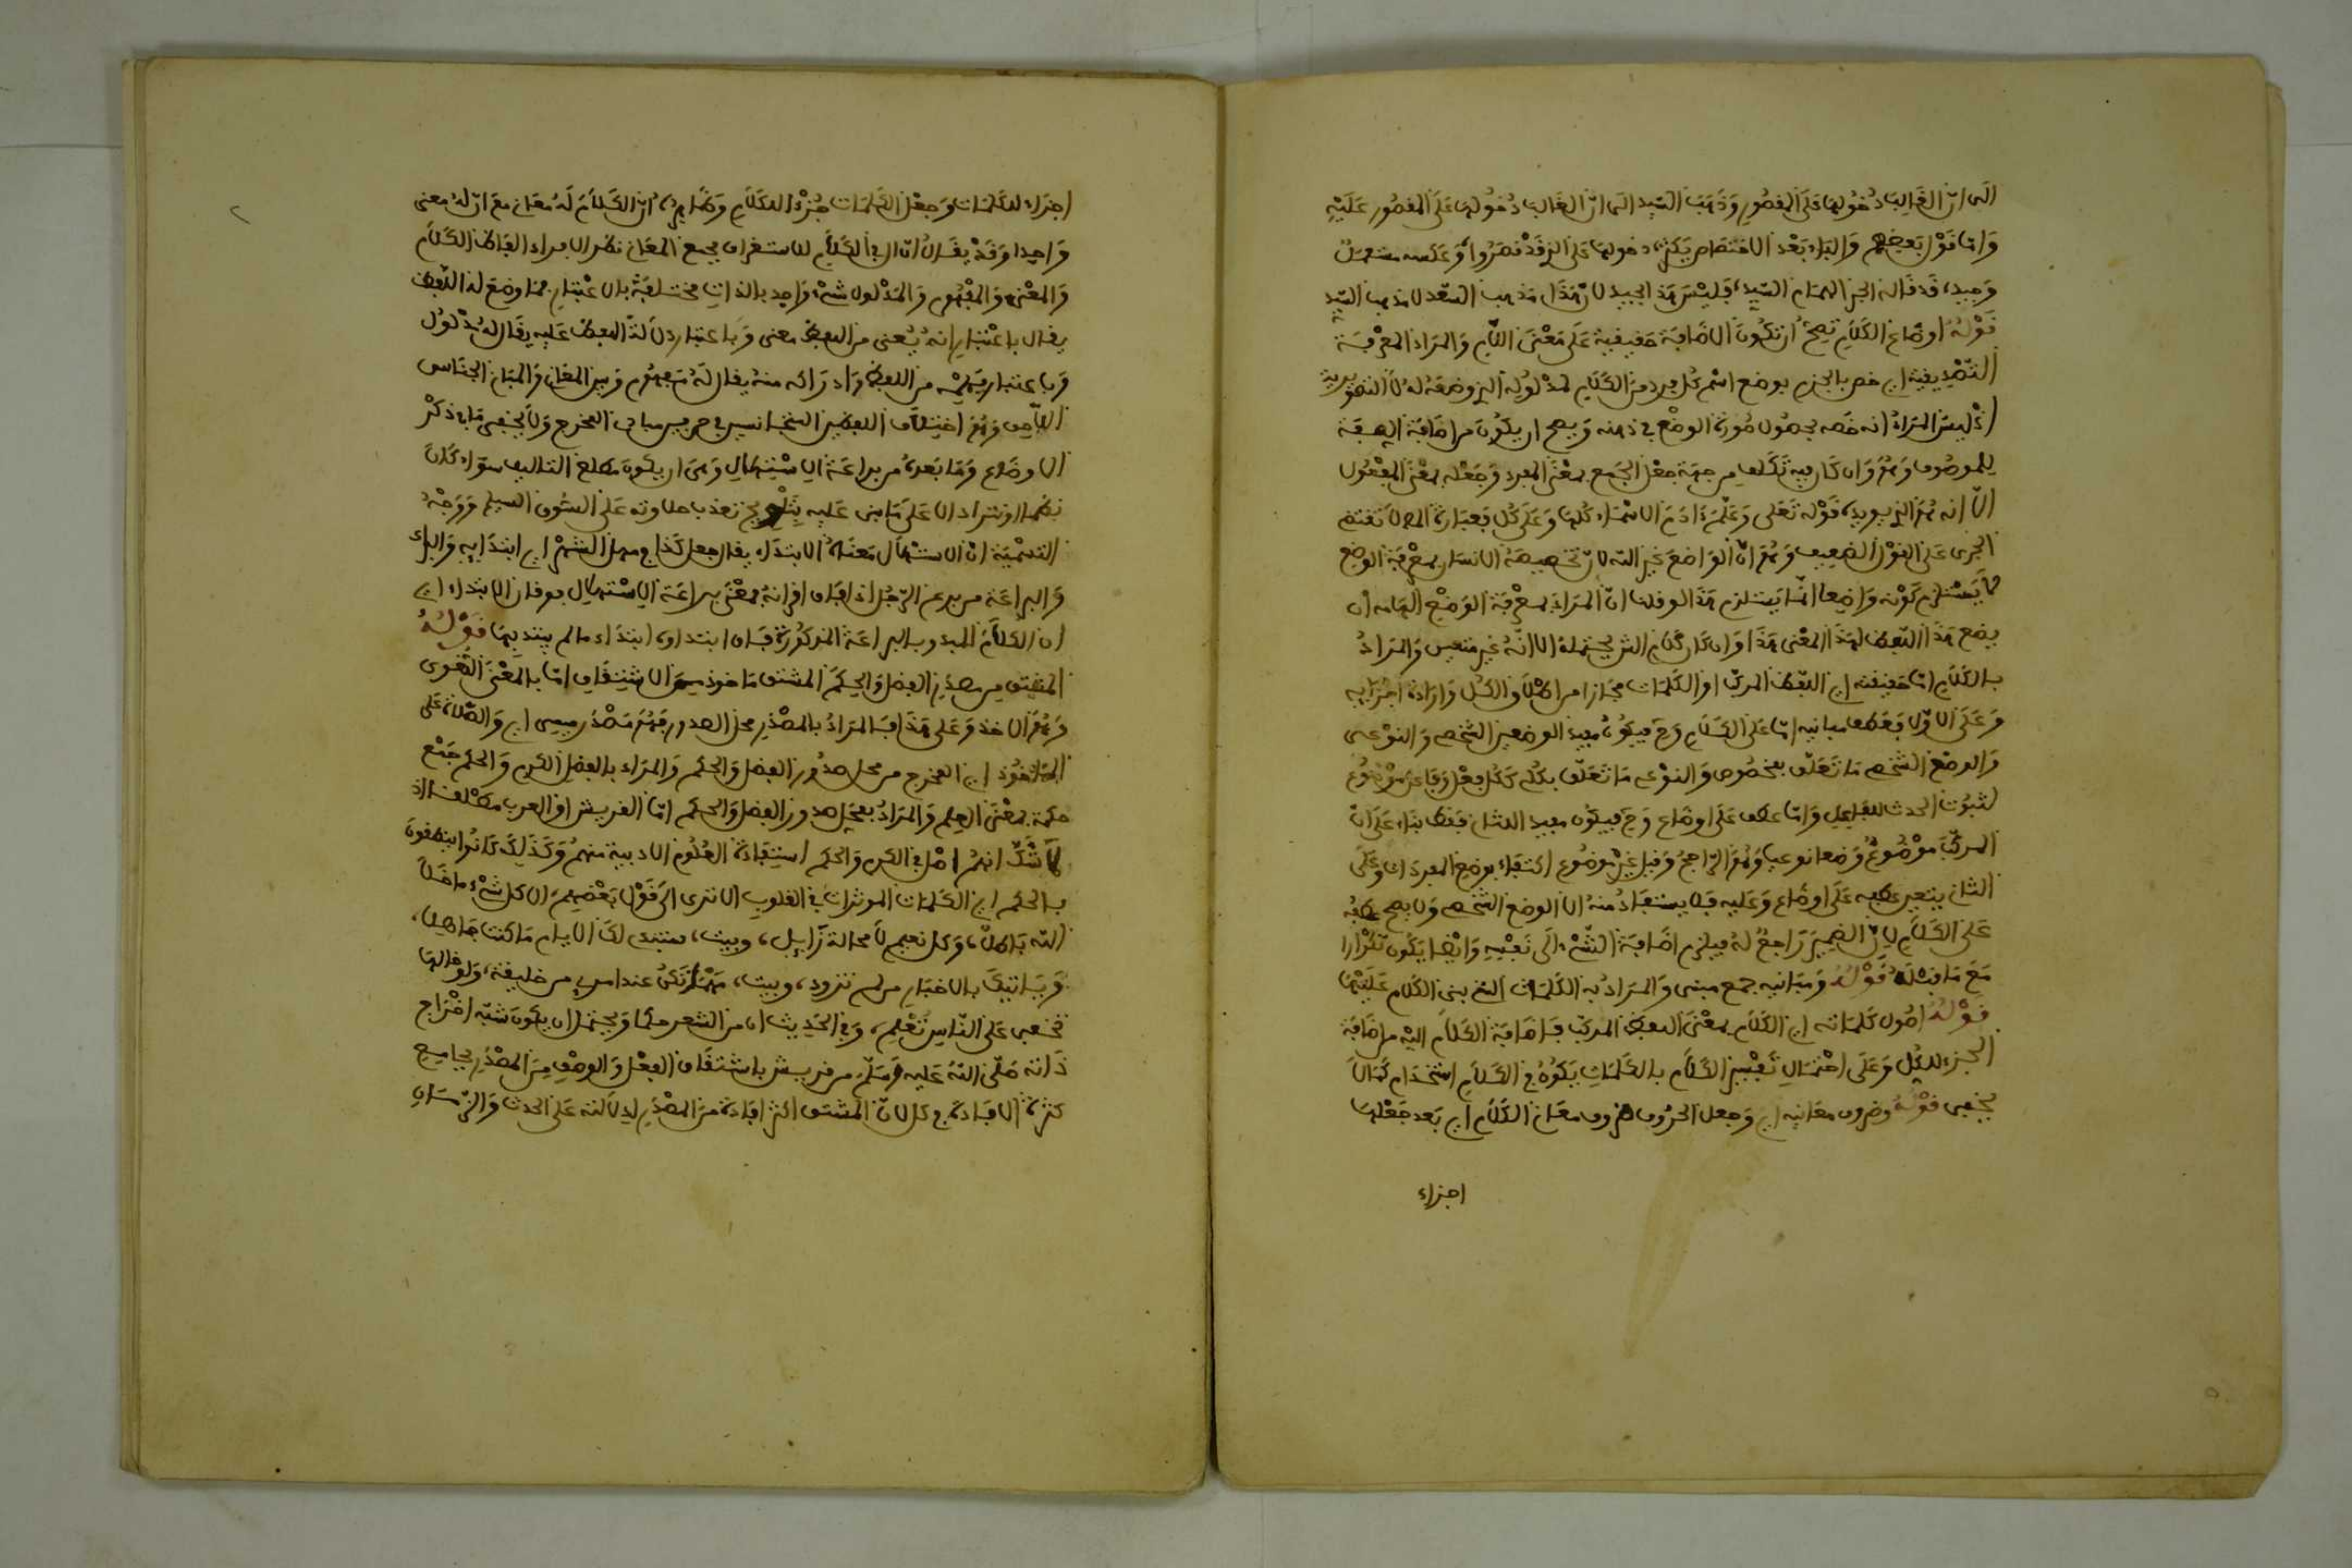 الى ان الغالب دخولها على المقصور وذهب السيد الى ان الغالب دخولها على المقصور عليه
واما قول بعضهم والباء بعد الاختصاص يكثر، دخولها على الذي قد قصروا وعكسه مستعمل
وجيد، قد قاله الحبر الهمام السيد، فليس هذا بجيد لان هذا مذهب السعد لا مذهب السيد
قوله اوضاع الكلام تصح ان تكون الاضافة حقيقية على معنى اللام والمراد المعرفة
التصديقية اي خص بالجزم بوضع اسم كل فرد من الكلام لمدلوله الذي وضعه له لا التصورية
اذ ليس المراد انه خصه بحصول صورة الوضع في ذهنه ويصح ان يكون من اضافة الصفة
للموصوف وهو وان كان فيه تكلف من جهة جعل الجمع بمعنى المفرد وجعله بمعنى المفعول
الا انه هو الذي يويده قوله تعلى وعلم ءادم الاسماء كلها وعلى كل فعبارة المص لا تقتضي
الجري على القول الضعيف وهو ان الواضع غير الله لان تخصيصه الانسان بمعرفة الوضع
لا يستلزم كونه واضعا انما يستلزم هذا لو قلنا ان المراد بمعرفة الوضع الهامه ان
يضع هذا اللفظ لهذا المعنى هذا وان كان كلام الش يحتمله الا انه غير متعين والمراد
بالكلام اما حقيقته اي اللفظ المركب او الكلمات مجازا من اطلاق الكل وارادة اجزايه
وعلى الاول فعطف مبانيه اما على الكلام وح فيكون مفيد الوضعين الشخصي والنوعي
والوضع الشخصي ما تعلق بمخصوص والنوعي ما تعلق بكلي ككل فعل وفاعل موضوع
لثبوت الحدث للفاعل واما عطف على اوضاع وح فيكون مفيد الثاني فقط بناء على ان
المركب موضوع وضعا نوعيا وهو الراجح وقيل غير موضوع اكتفاء بوضع المفردات وعلى
الثاني يتعين عطفه على اوضاع وعليه فلا يستفاد منه الا الوضع الشخصي ولا يصح عطفه
على الكلام لان الضمير راجع له فيلزم اضافة الشيء الى نفسه وايضا يكون تكرارا
مع ما قبله قوله ومبانيه جمع مبنى والمراد به الكلمات التي بني الكلام عليها
قوله اصول كلماته اي الكلام بمعنى اللفظ المركب فاضافة الكلام اليه من اضافة
الجزء للكل وعلى احتمال تفسير الكلام بالكلمات يكون في الكلام استخدام كما لا
يخفى قوله وظروف معانيه اي وجعل الحروف ظروف معاني الكلام اي بعد جعلها
اجزاء
اجزاء للكلمات وجعل الكلمات جزءا للكلام وظاهره ان الكلام له معان مع ان له معنى
واحدا وقد يقال ان ال في الكلام للاستغراق فجمع المعاني نظرا لافراد الفاظ الكلام
والمعنى والمفهوم والمدلول شيء واحد بالذات مختلفة بالاعتبار فما وضع له اللفظ
يقال باعتبار انه يعنى من اللفظ معنى وباعتبار دلالة اللفظ عليه يقال له مدلول
وباعتبار فهمه من اللفظ وادراكه منه يقال له مفهوم وبين المعاني والمباني الجناس
اللاحق وهو اختلاف اللفظين المتجانسين في حرفين متباعدي المخرج ولا يخفى ما في ذكر
الاوضاع وما بعده من براعة الاستهلال وهي ان يكون مطلع التاليف سواء كان
نظما او نثرا دالا على ما بني عليه
التسمية ان الاستهلال معناه الابتداء يقال جعل كذا في مهل الشهر اي ابتدايه
والبراعة من برع الرجل اذا فاق اقرانه فمعنى براعة الاستهلال فوقان الابتداء اي
ان الكلام المبدو بالبراعة المذكورة فاق ابتداوه ابتداء ما لم يبتد بها قوله
المشتق من مصدر الفضل والحكم المشتق ماخوذ من الاشتقاق اما بالمعنى اللغوي
وهو الاخذ وعلى هذا فالمراد بالمصدر محل الصدور فهو مصدر ميمي اي والصلاة على
الماخوذ اي المخرج من محل صدور الفضل والحكم والمراد بالفضل الكرم والحكم جمع
حكمة بمعنى العلم والمراد بمحل صدور الفضل والحكم اما القريش او العرب مطلقا اذ
لا شك انهم اصل في الكرم والحكم استفادة العلوم الادبية منهم وكذلك كانوا ينطقون
بالحكم اي الكلمات الموثرات في القلوب الا ترى الى قول بعضهم، الا كل شيء ما خلا
الله باطل، وكل نعيم لا محالة زايل، وبيت، ستبدي لك الايام ما كنت جاهلا،
وياتيك بالاخبار من لم تزود، وبيت، مهما تكن عند امرئ من خليقة، ولو خالها
تخفى على الناس تعلم، وفي الحديث ان من الشعر حكما ويحتمل ان يكون شبه اخراج
ذاته صلى الله عليه وسلم من قريش باشتقاق الفعل والوصف من المصدر بجامع
كثرة الافادة في كل لان المشتق اكثر افادة من المصدر لدلالته على الحدث والزمان